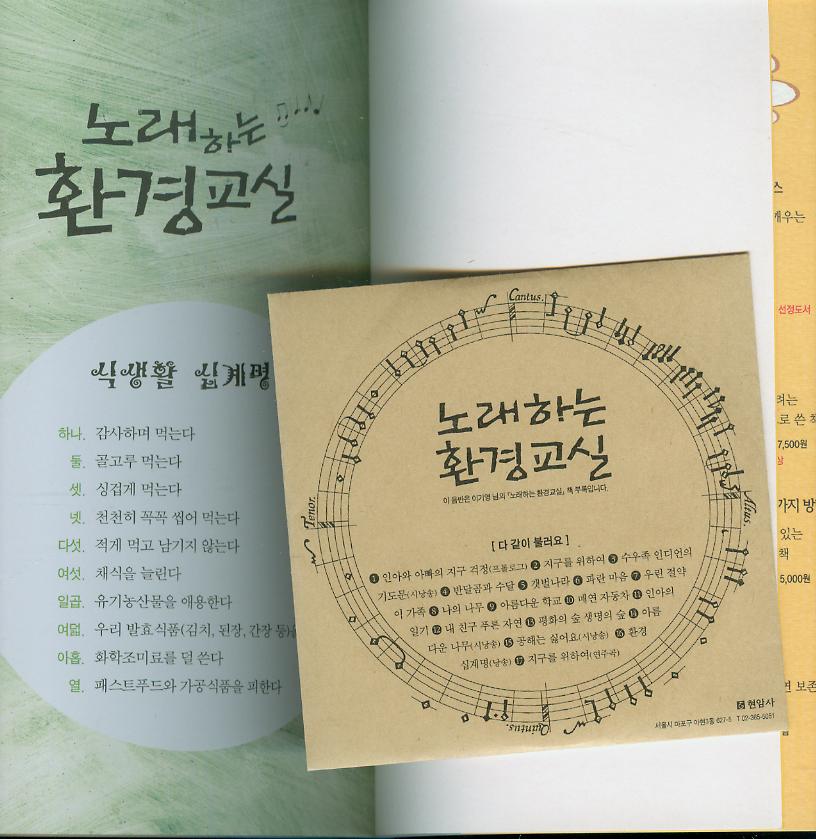 노래하는
환경교실
식생활 십계명
하나. 감사하며 먹는다
둘. 골고루 먹는다
셋. 싱겁게 먹는다
넷. 천천히 꼭꼭 씹어 먹는다
다섯. 적게 먹고 남기지 않는다
여섯. 채식을 늘린다
일곱. 유기농산물을 애용한다
여덟. 우리 발효식품(김치, 된장, 간장 등)을
아홉. 화학조미료를 덜 쓴다
열. 패스트푸드와 가공식품을 피한다
Cantus.
Tenor.
Altus.
Quintus.
노래하는
환경교실
이 음반은 이기영 님의 『노래하는 환경교실』 책 부록입니다.
[ 다 같이 불러요 ]
1 인아와 아빠의 지구 걱정(프롤로그) 2 지구를 위하여 3 수우족 인디언의
기도문(시낭송) 4 반달곰과 수달 5 갯벌나라 6 파란 마음 7 우린 절약
이 가족 8 나의 나무 9 아름다운 학교 10 매연 자동차 11 인아의
일기 12 내 친구 푸른 자연 13 평화의 숲 생명의 숲 14 아름
다운 나무(시낭송) 15 공해는 싫어요(시낭송) 16 환경
십계명(낭송) 17 지구를 위하여(연주곡)
현암사
서울시 마포구 아현3동 627-5 T 02-365-5051
스
깨우는
선정도서
려는
로 쓴 책
7,500원
상
가지 방
있는
책
5,000원
면 보존